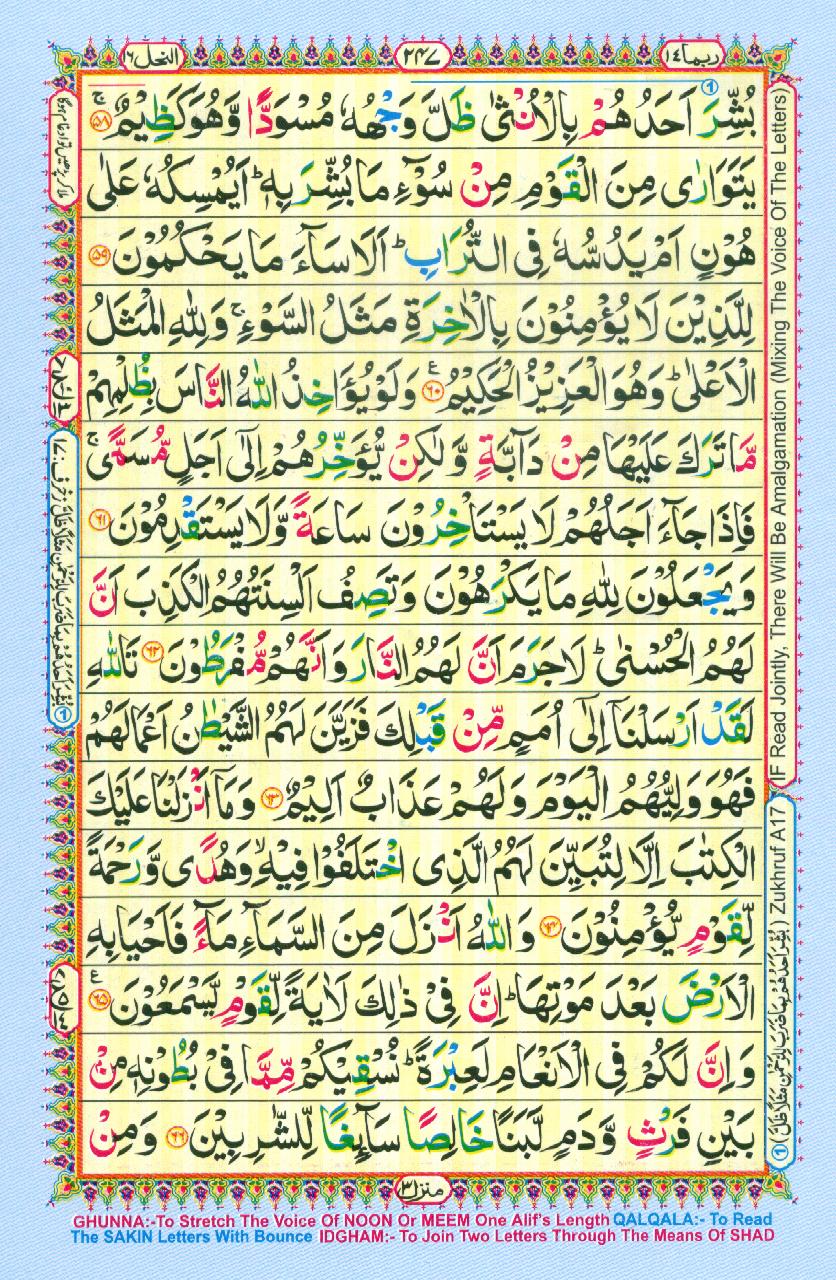 ربما ١٤
٢٤٧
النحل ١٦
بُشِّرَ اَحَدُهُمْ بِالْاُنْثٰى ظَلَّ وَجْهُهٗ مُسْوَدًّا وَّهُوَ كَظِيْمٌ ۚ ٥٨
يَتَوَارٰى مِنَ الْقَوْمِ مِنْ سُوْٓءِ مَا بُشِّرَ بِهٖ ؕ اَيُمْسِكُهٗ عَلٰى
هُوْنٍ اَمْ يَدُسُّهٗ فِى التُّرَابِ ؕ اَلَا سَآءَ مَا يَحْكُمُوْنَ ٥٩
لِلَّذِيْنَ لَا يُؤْمِنُوْنَ بِالْاٰخِرَةِ مَثَلُ السَّوْءِ ۚ وَلِلّٰهِ الْمَثَلُ
الْاَعْلٰى ؕ وَهُوَ الْعَزِيْزُ الْحَكِيْمُ ٦٠ ع وَلَوْ يُؤَاخِذُ اللّٰهُ النَّاسَ بِظُلْمِهِمْ
مَّا تَرَكَ عَلَيْهَا مِنْ دَآبَّةٍ وَّلٰكِنْ يُّؤَخِّرُهُمْ اِلٰٓى اَجَلٍ مُّسَمًّى ۚ
فَاِذَا جَآءَ اَجَلُهُمْ لَا يَسْتَاْخِرُوْنَ سَاعَةً وَّلَا يَسْتَقْدِمُوْنَ ٦١
وَيَجْعَلُوْنَ لِلّٰهِ مَا يَكْرَهُوْنَ وَتَصِفُ اَلْسِنَتُهُمُ الْكَذِبَ اَنَّ
لَهُمُ الْحُسْنٰى ؕ لَا جَرَمَ اَنَّ لَهُمُ النَّارَ وَاَنَّهُمْ مُّفْرَطُوْنَ ٦٢ تَاللّٰهِ
لَقَدْ اَرْسَلْنَاۤ اِلٰٓى اُمَمٍ مِّنْ قَبْلِكَ فَزَيَّنَ لَهُمُ الشَّيْطٰنُ اَعْمَالَهُمْ
فَهُوَ وَلِيُّهُمُ الْيَوْمَ وَلَهُمْ عَذَابٌ اَلِيْمٌ ٦٣ وَمَاۤ اَنْزَلْنَا عَلَيْكَ
الْكِتٰبَ اِلَّا لِتُبَيِّنَ لَهُمُ الَّذِى اخْتَلَفُوْا فِيْهِ ۙ وَهُدًى وَّرَحْمَةً
لِّقَوْمٍ يُّؤْمِنُوْنَ ٦٤ وَاللّٰهُ اَنْزَلَ مِنَ السَّمَآءِ مَآءً فَاَحْيَا بِهِ
الْاَرْضَ بَعْدَ مَوْتِهَا ؕ اِنَّ فِىْ ذٰلِكَ لَاٰيَةً لِّقَوْمٍ يَّسْمَعُوْنَ ٦٥ ع
وَاِنَّ لَكُمْ فِى الْاَنْعَامِ لَعِبْرَةً ؕ نُسْقِيْكُمْ مِّمَّا فِىْ بُطُوْنِهٖ مِنْۢ
بَيْنِ فَرْثٍ وَّدَمٍ لَّبَنًا خَالِصًا سَآئِغًا لِّلشّٰرِبِيْنَ ٦٦ وَمِنْ
منزل ٣
(IF Read Jointly, There Will Be Amalgamation (Mixing The Voice Of The Letters)
Zukhruf A17
GHUNNA:-To Stretch The Voice Of NOON Or MEEM One Alif's Length QALQALA:- To Read
The SAKIN Letters With Bounce IDGHAM:- To Join Two Letters Through The Means Of SHAD